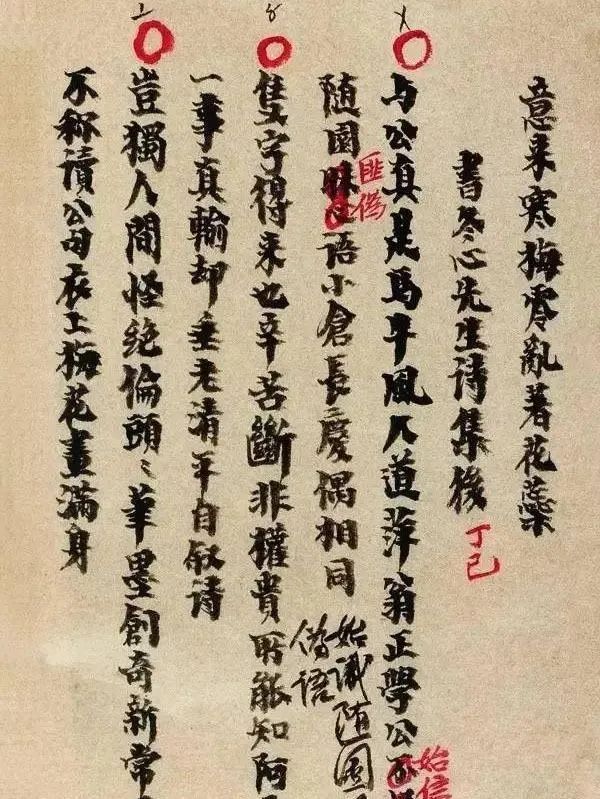 意来寒梅零亂著花蘂
書冬心先生诗集後
丁巳
与公真是馬牛風人道萍翁正學公
始信
随園
語小倉長慶偶相同
匪偽
始識随園
偽語
隻字得来也辛苦斷非權貴所能知阿
一事真輸却垂老清平自叙诗
豈獨人間怪绝倫頭〻筆墨創奇新常
不称讀公句衣上梅花畫滿身